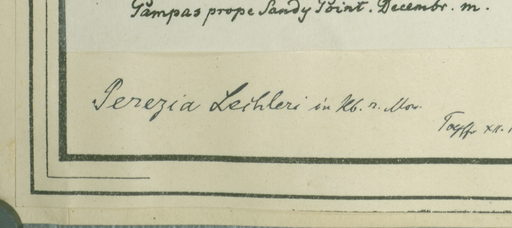 Pampas prope Sandy Point. Decembr. m.
Perezia Lechleri in Hb. n. Mon.